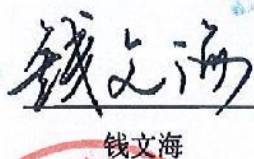 钱文海
钱文海